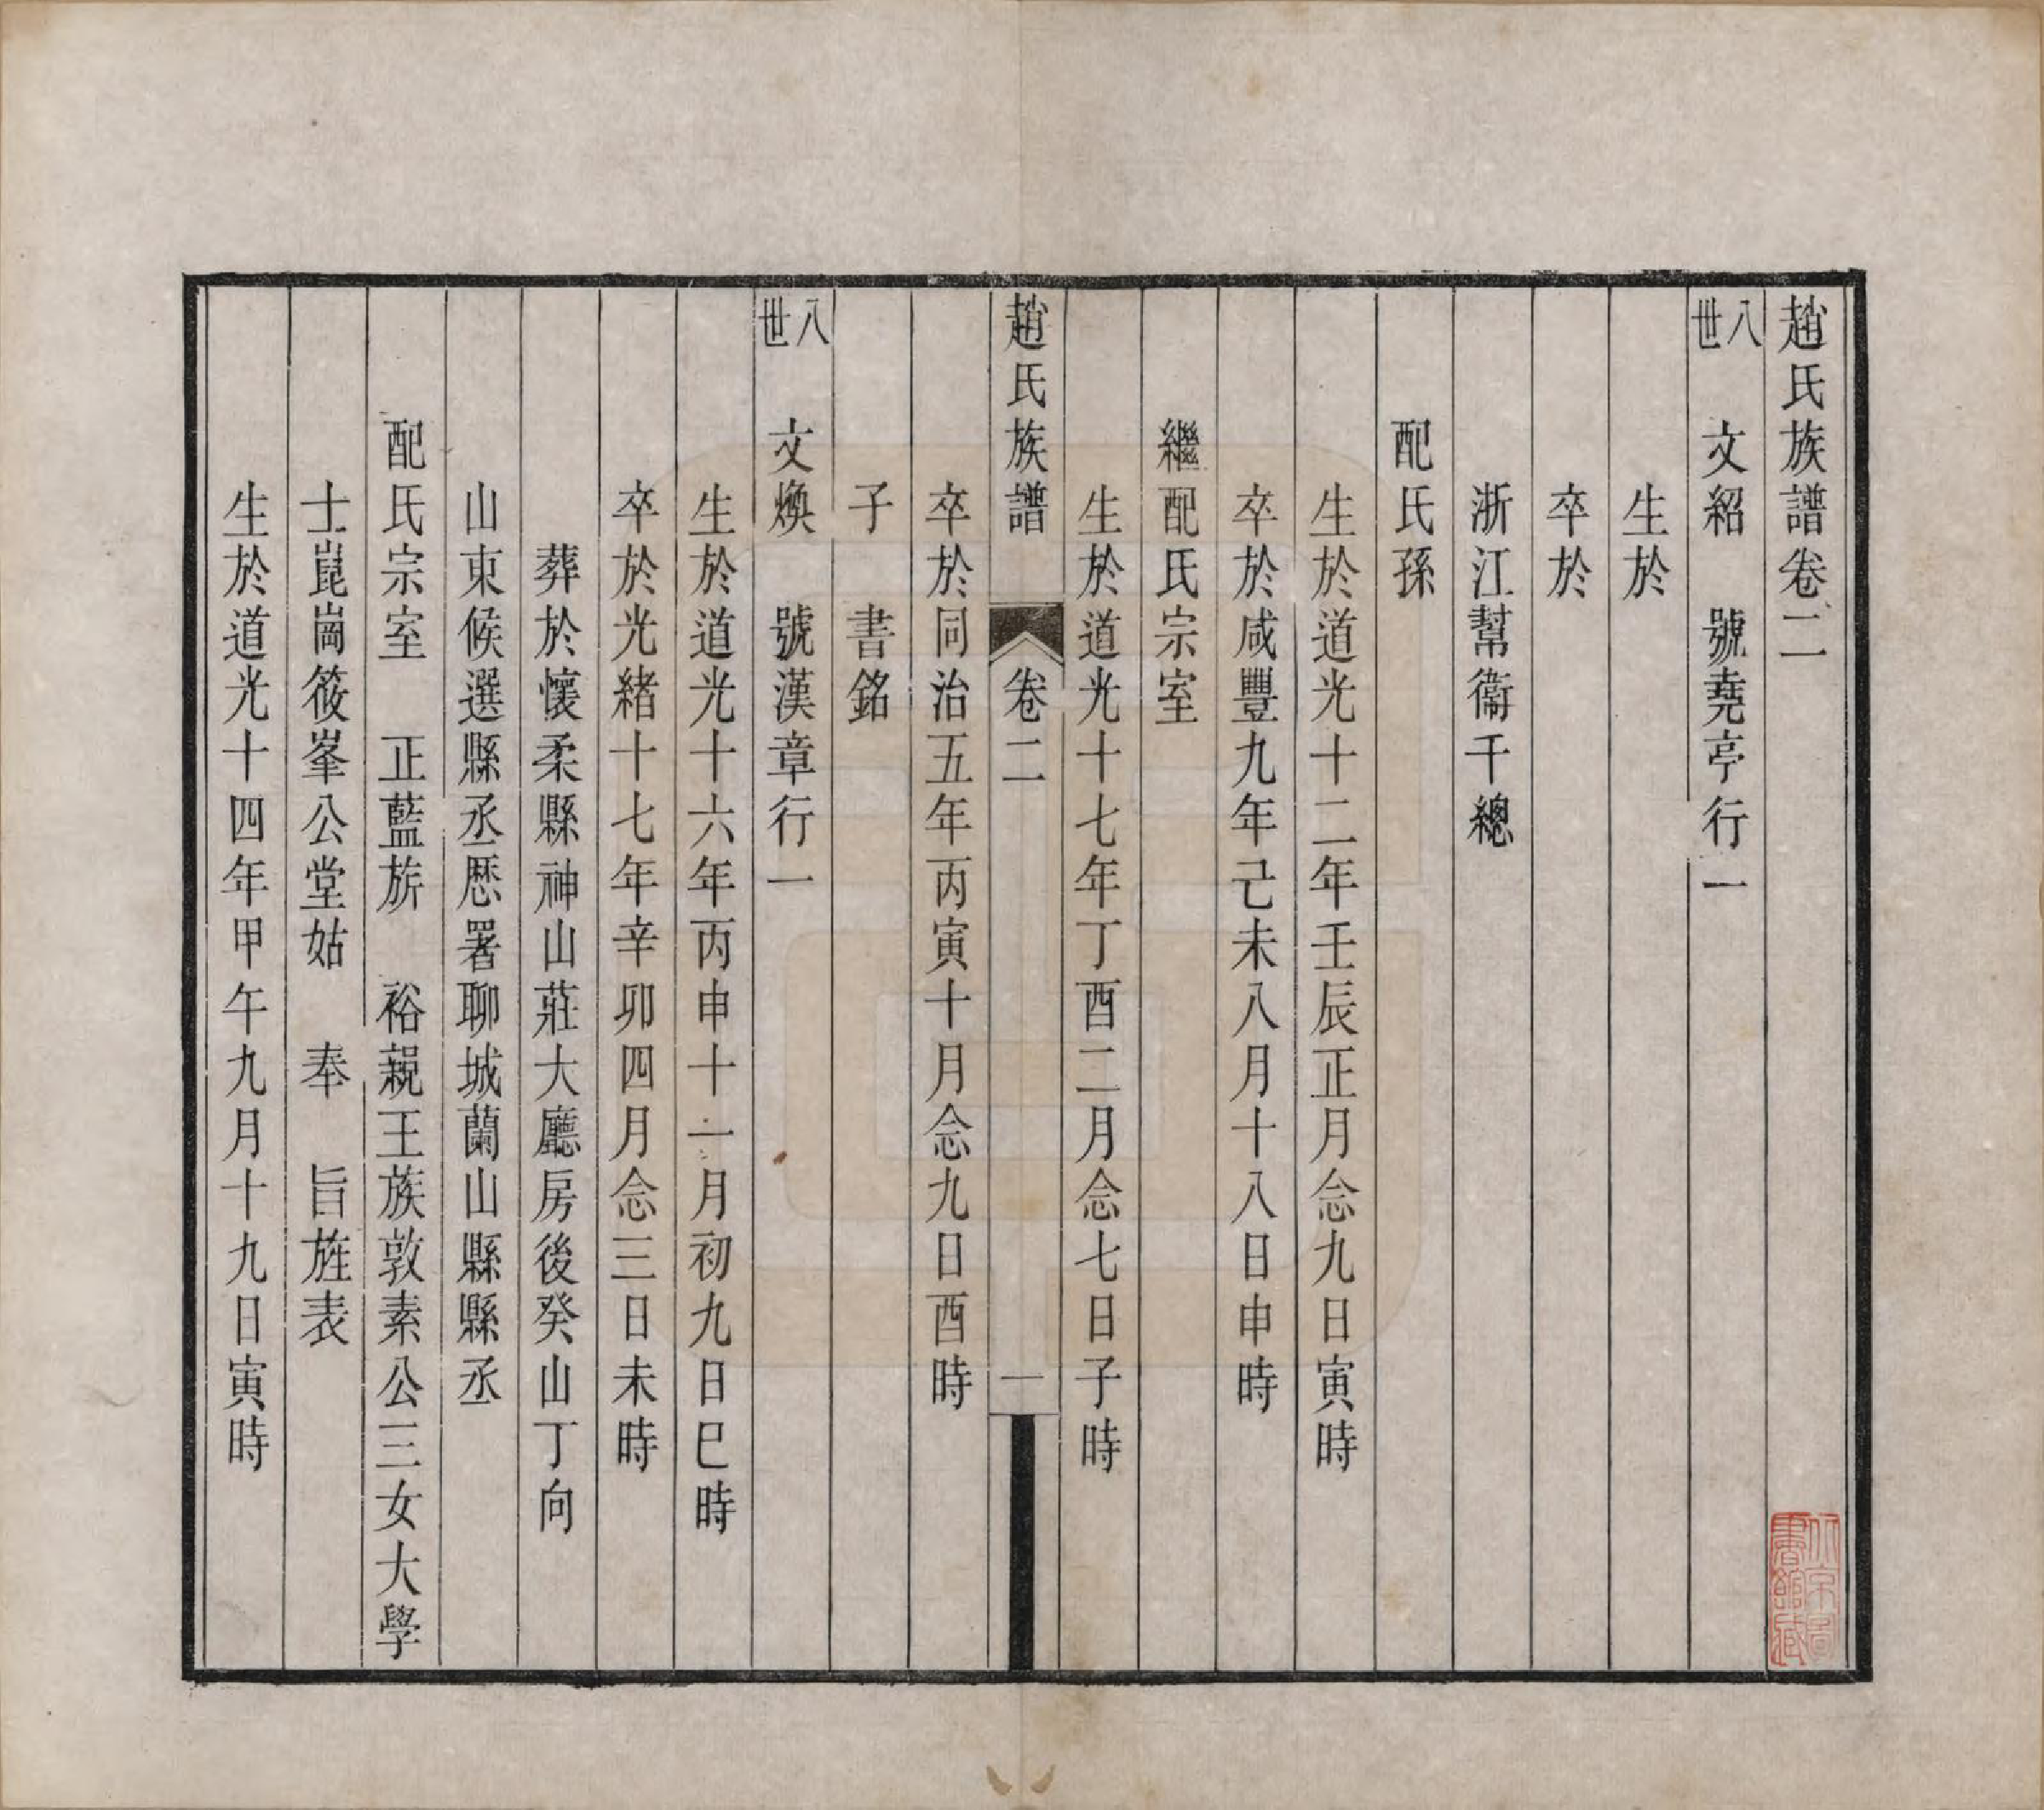 趙氏族譜卷二
八世　文紹　號堯亭行一
生於
卒於
浙江幫衞千總
配氏孫
生於道光十二年壬辰正月念九日寅時
卒於咸豐九年己未八月十八日申時
繼配氏宗室
生於道光十七年丁酉二月念七日子時
趙氏族譜　卷二　一
卒於同治五年丙寅十月念九日酉時
子　書銘
八世　文煥　號漢章行一
生於道光十六年丙申十一月初九日巳時
卒於光緒十七年辛卯四月念三日未時
葬於懷柔縣神山莊大廳房後癸山丁向
山東候選縣丞歷署聊城蘭山縣縣丞
配氏宗室　正藍旂　裕親王族敦素公三女大學
士崑崗筱峯公堂姑　奉　旨旌表
生於道光十四年甲午九月十九日寅時
北京圖書館藏